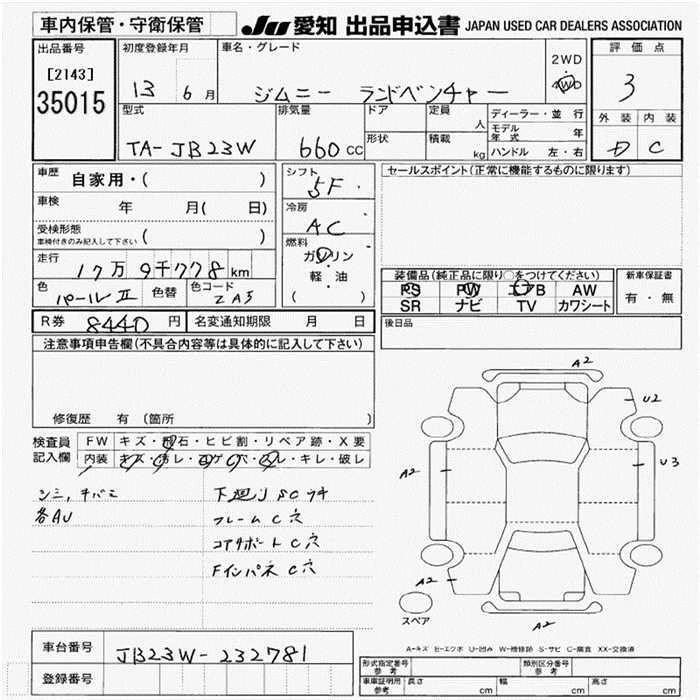 車内保管・守衛保管
JU 愛知 出品申込書 JAPAN USED CAR DEALERS ASSOCIATION
出品番号
[2143]
35015
初度登録年月
13 6 月
車名・グレード
ジムニー ランドベンチャー
2WD
4WD
評価点
3
外装 内装
D C
型式
TA-JB23W
排気量
660 cc
ドア
形状
定員
人
積載
kg
ディーラー・並行
モデル年式 年
ハンドル 左・右
車歴
自家用・( )
車検
年 月( 日)
受検形態
車検付きのみ記入して下さい ( )
走行
17万9千778km
色
パールⅡ
色替
色コード
ZA5
シフト
5F
冷房
AC
燃料
ガソリン
軽・油
( )
セールスポイント(正常に機能するものに限ります)
装備品(純正品に限り○をつけてください)
PS PW エアB AW
SR ナビ TV カワシート
新車保証書
有・無
後日品
R券 8440 円 名変通知期限 月 日
注意事項申告欄(不具合内容等は具体的に記入して下さい)
修復歴 有 (箇所 )
検査員記入欄
FW キズ・飛石・ヒビ割・リペア跡・X要
内装 キズ・汚レ・コゲ・穴・スレ・キレ・破レ
シミ,チバミ
各AU
下廻り SCウキ
フレームC穴
コアサポートC穴
FインパネC穴
A2
U2
A2
U3
A2
A2
スペア
A-キズ E-エクボ U-凹み W-補修跡 S-サビ C-腐食 XX-交換済
車台番号 JB23W-232781
登録番号
形式指定番号 参考
類別区分番号 参考
車庫証明用 参考 長さ cm 幅 cm 高さ cm